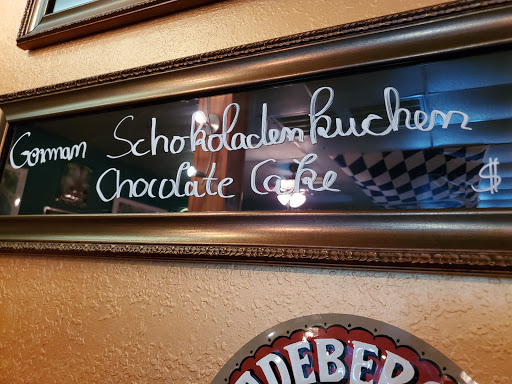 German Schokoladenkuchen
Chocolate Cake $
ADEBER